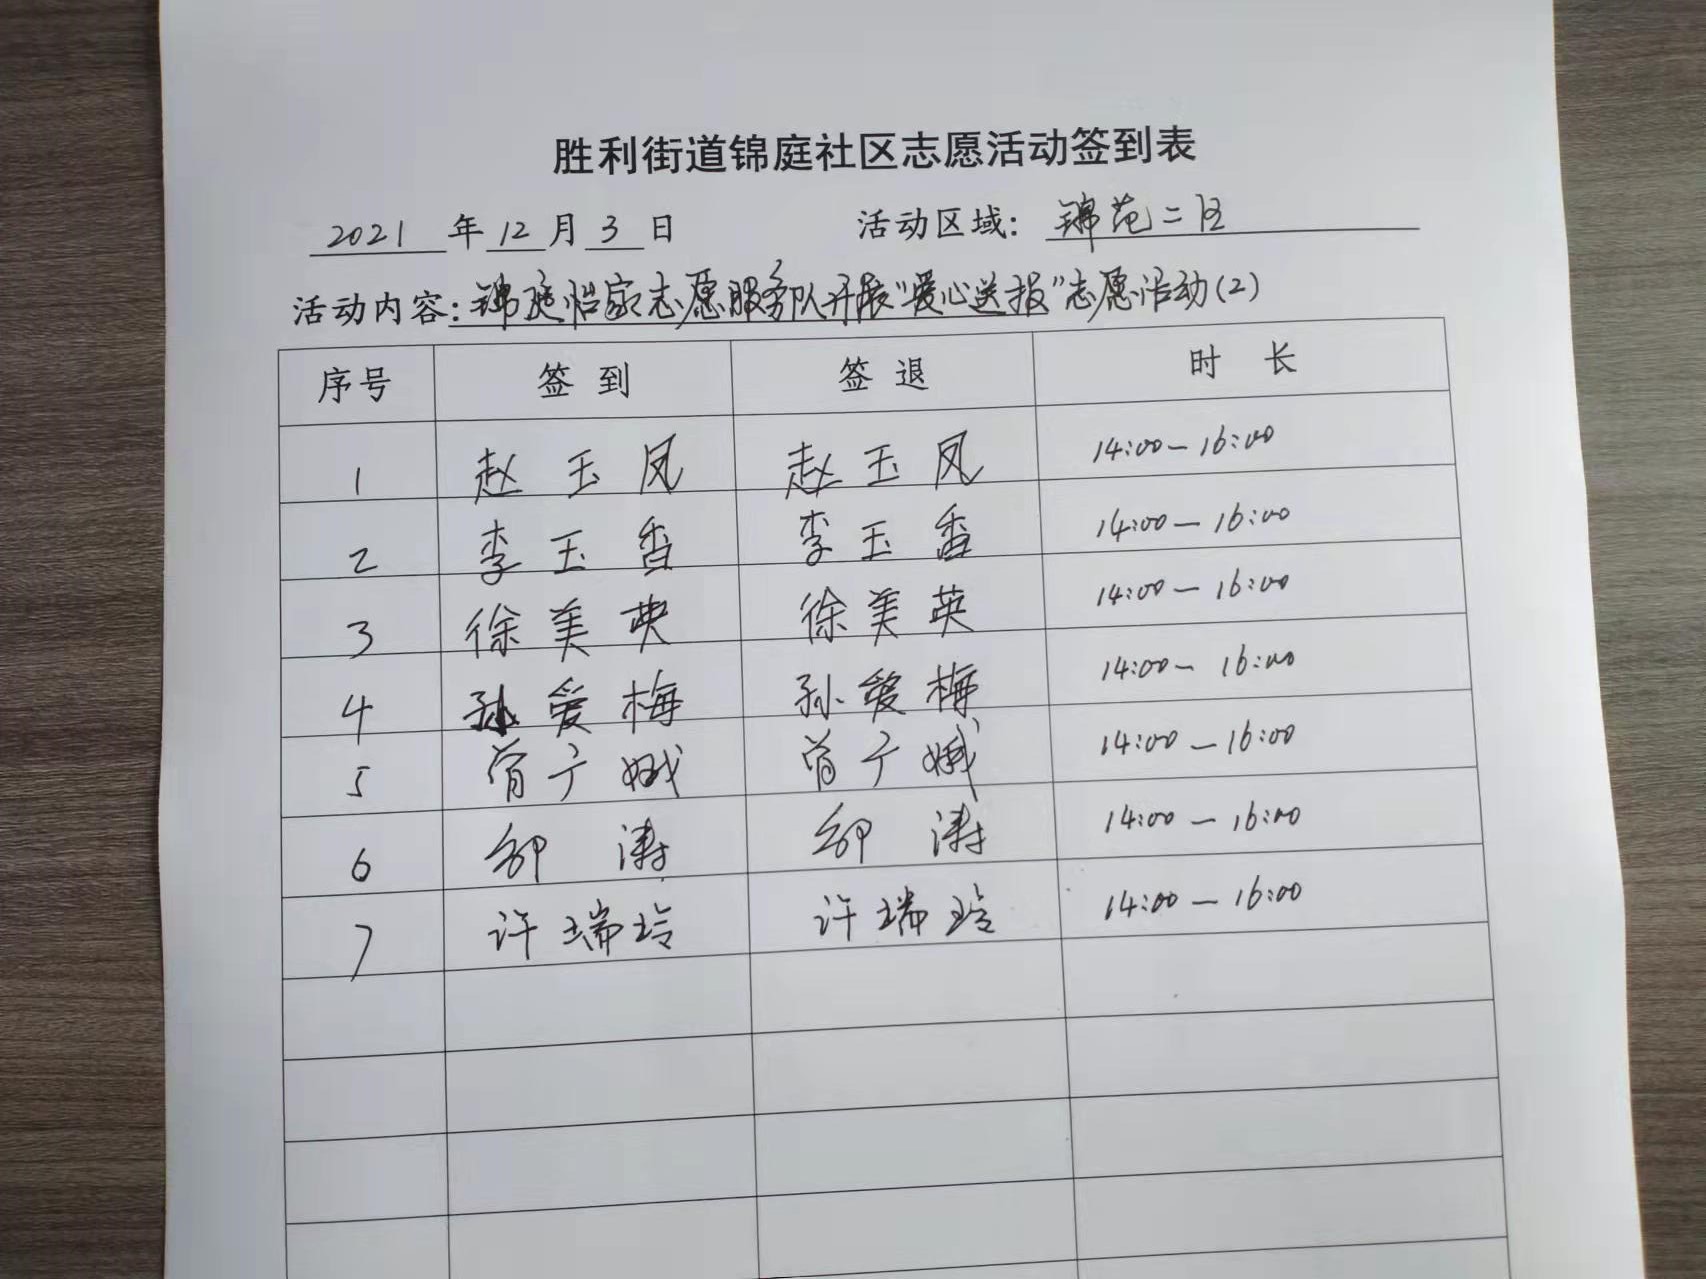 胜利街道锦庭社区志愿活动签到表
2021 年 12 月 3 日 活动区域: 锦苑二区
活动内容: 锦庭怡家志愿服务队开展“爱心送报”志愿活动(2)
序号 签到 签退 时长
1 赵玉凤 赵玉凤 14:00-16:00
2 李玉香 李玉香 14:00-16:00
3 徐美英 徐美英 14:00-16:00
4 孙爱梅 孙爱梅 14:00-16:00
5 曾宁娥 曾宁娥 14:00-16:00
6 邹涛 邹涛 14:00-16:00
7 许瑞玲 许瑞玲 14:00-16:00